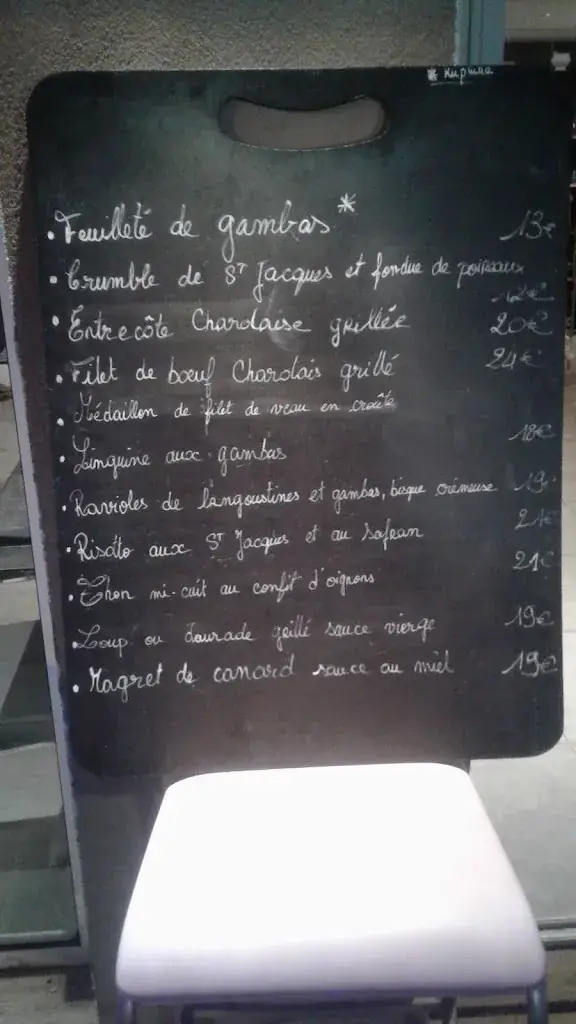 · Feuilleté de gambas * 13€
· Crumble de St Jacques et fondue de poireaux
12€
· Entrecôte Charolaise grillée 20€
· Filet de bœuf Charolais grillé 24€
· Médaillon de filet de veau en croûte
· Linguine aux gambas 18€
· Ravioles de langoustines et gambas, bisque crémeuse 19€
· Risotto aux St Jacques et au safran 21€
· Thon mi-cuit au confit d'oignons 21€
· Loup ou daurade grillé sauce vierge 19€
· Magret de canard sauce au miel 19€